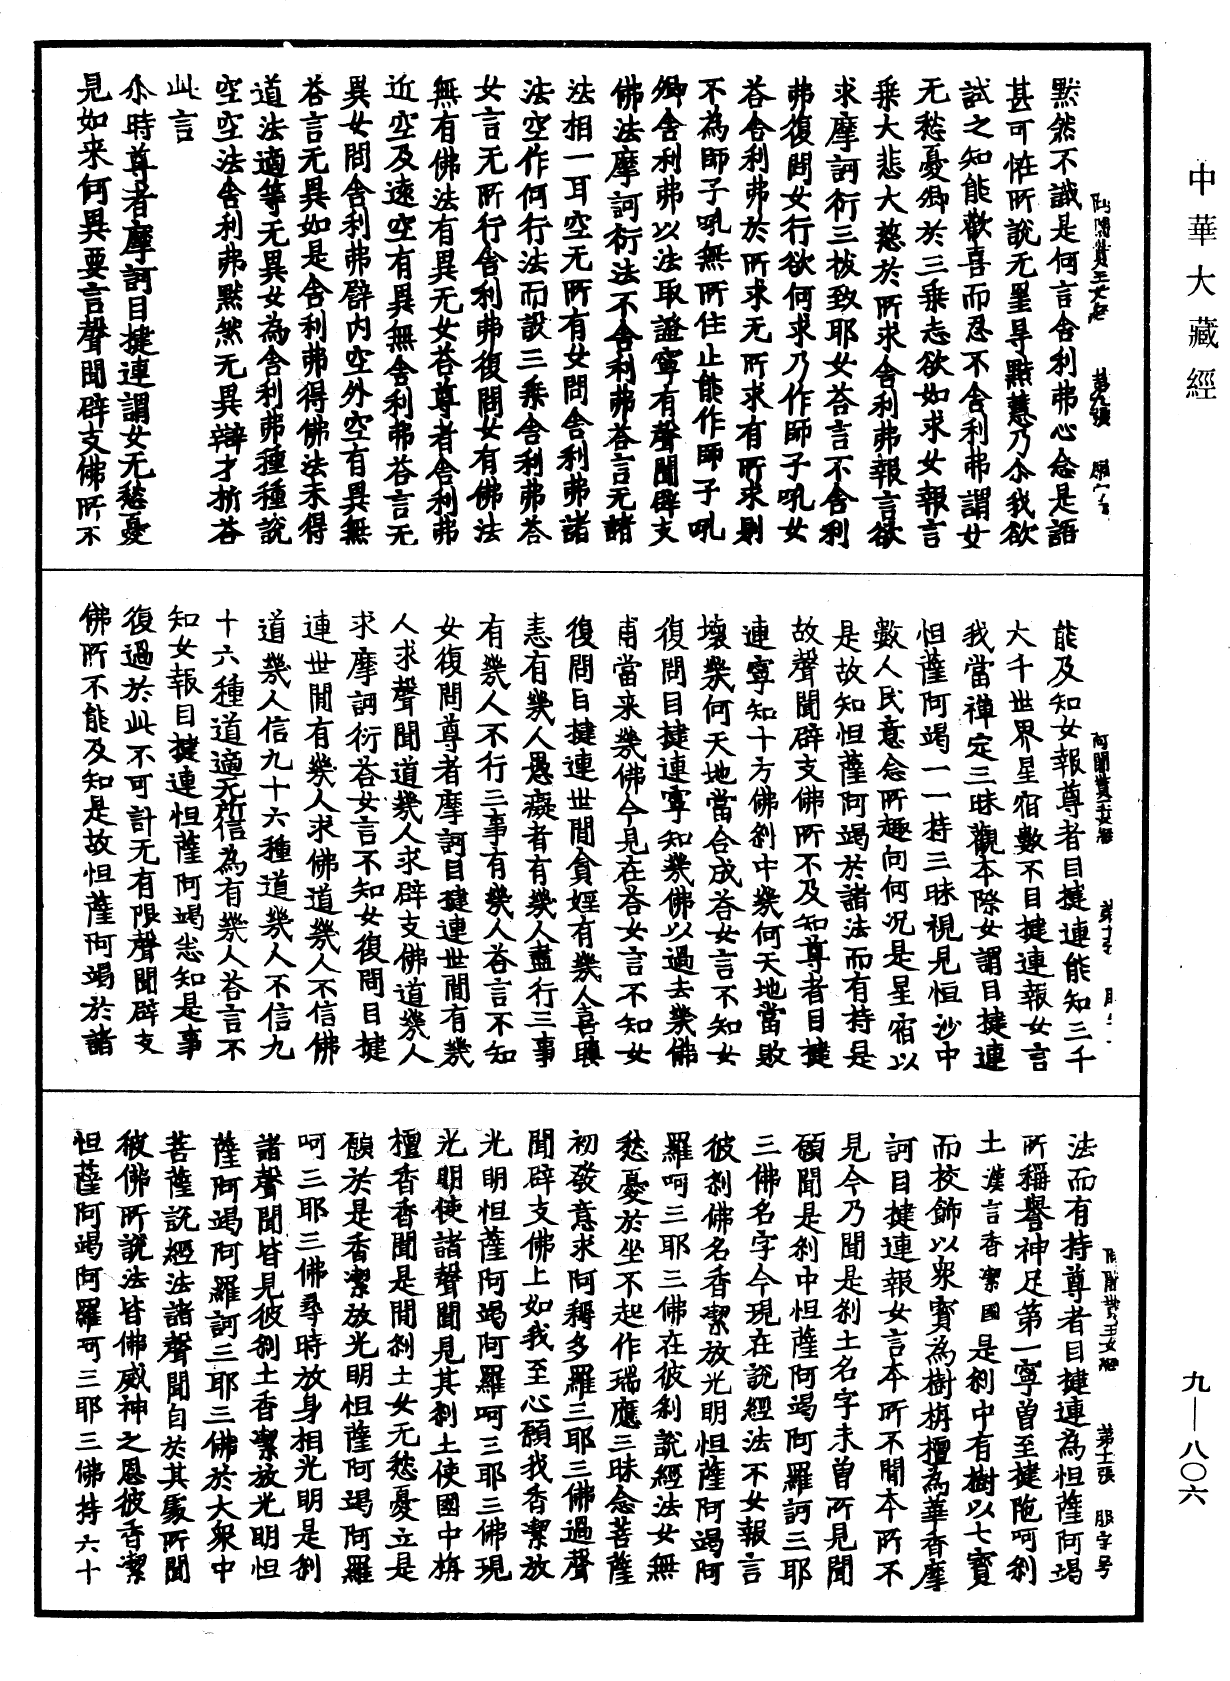 中華大藏經
默然不識是何言舍利弗心念是語
甚可恠所說无罣㝵黠慧乃尒我欲
試之知能歡喜而忍不舍利弗謂女
无愁憂卿於三乘志欲如求女報言
乘大悲大慈於所求舍利弗報言欲
求摩訶衍三拔致耶女荅言不舍利
弗復問女行欲何求乃作師子吼女
荅舍利弗於所求无所求有所求則
不為師子吼無所住止能作師子吼
卿舍利弗以法取證寧有聲聞辟支
佛法摩訶衍法不舍利弗荅言无諸
法相一耳空无所有女問舍利弗諸
法空作何行法而設三乘舍利弗荅
女言无所行舍利弗復問女有佛法
無有佛法有異无女荅尊者舍利弗
近空及遠空有異無舍利弗荅言无
異女問舍利弗辟内空外空有異無
荅言无異如是舍利弗得佛法未得
道法適等无異女為舍利弗種種說
空空法舍利弗默然无異辯才折荅
此言
尒時尊者摩訶目揵連謂女无愁憂
見如来何異要言聲聞辟支佛所不
阿闍貰王女經
能及知女報尊者目揵連能知三千
大千世界星宿數不目揵連報女言
我當禅定三昧觀本際女謂目揵連
怛薩阿竭一一持三昧視見恒沙中
數人民意念所趣向何况是星宿以
是故知怛薩阿竭於諸法而有持是
故聲聞辟支佛所不及知尊者目揵
連寧知十方佛刹中幾何天地當敗
壞幾何天地當合成荅女言不知女
復問目揵連寧知幾佛以過去幾佛
甫當来幾佛今見在荅女言不知女
復問目揵連世間貪婬有幾人喜瞋
恚有幾人愚癡者有幾人盡行三事
有幾人不行三事有幾人荅言不知
女復問尊者摩訶目揵連世間有幾
人求聲聞道幾人求辟支佛道幾人
求摩訶衍荅女言不知女復問目揵
連世間有幾人求佛道幾人不信佛
道幾人信九十六種道幾人不信九
十六種道適无所信為有幾人荅言不
知女報目揵連怛薩阿竭悉知是事
復過於此不可計无有限聲聞辟支
佛所不能及知是故怛薩阿竭於諸
阿闍貰王女經 第十一張 服字号
法而有持尊者目揵連為怛薩阿竭
所稱譽神足第一寧曽至揵陁呵刹
土漢言香潔國是刹中有樹以七寳
而校飾以衆寳為樹栴檀為華香摩
訶目揵連報女言本所不聞本所不
見今乃聞是刹土名字未曽所見聞
願聞是刹中怛薩阿竭阿羅訶三耶
三佛名字今現在說經法不女報言
彼刹佛名香潔放光明怛薩阿竭阿
羅呵三耶三佛在彼刹說經法女無
愁憂於坐不起作瑞應三昧念菩薩
初發意求阿耨多羅三耶三佛過聲
聞辟支佛上如我至心願我香潔放
光明怛薩阿竭阿羅呵三耶三佛現
光明使諸聲聞見其刹土使國中栴
檀香香聞是間刹土女无愁憂立是
願於是香潔放光明怛薩阿竭阿羅
呵三耶三佛尋時放身相光明是刹
諸聲聞皆見彼刹土香潔放光明怛
薩阿竭阿羅訶三耶三佛於大衆中
菩薩說經法諸聲聞自於其處所聞
彼佛所說法皆佛威神之恩彼香潔
怛薩阿竭阿羅呵三耶三佛持六十
九—八〇六